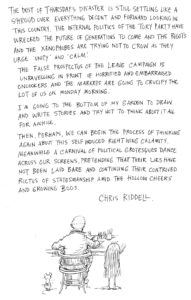 THE DUST OF THURSDAY'S DISASTER IS STILL SETTLING LIKE A
SHROUD OVER EVERYTHING DECENT AND FORWARD LOOKING IN
THIS COUNTRY. THE INTERNAL POLITICS OF THE TORY PARTY HAVE
WRECKED THE FUTURE OF GENERATIONS TO COME AND THE BIGOTS
AND THE XENOPHOBES ARE TRYING NOT TO CROW AS THEY
URGE 'UNITY' AND 'CALM'.
THE FALSE PROSPECTUS OF THE LEAVE CAMPAIGN IS
UNRAVELLING IN FRONT OF HORRIFIED AND EMBARRASSED
ONLOOKERS AND THE MARKETS ARE GOING TO CRUCIFY THE
LOT OF US ON MONDAY MORNING.
I'M GOING TO THE BOTTOM OF MY GARDEN TO DRAW
AND WRITE STORIES AND TRY NOT TO THINK ABOUT IT ALL
FOR AWHILE.
THEN, PERHAPS, WE CAN BEGIN THE PROCESS OF THINKING
AGAIN ABOUT THIS SELF INDUCED RIGHT WING CALAMITY.
MEANWHILE A CARNIVAL OF POLITICAL GROTESQUES DANCE
ACROSS OUR SCREENS, PRETENDING THAT THEIR LIES HAVE
NOT BEEN LAID BARE AND CONTINUE THEIR CONTRIVED
RICTUS OF STATESMANSHIP AMID THE HOLLOW CHEERS
AND GROWING BOOS.
CHRIS RIDDELL